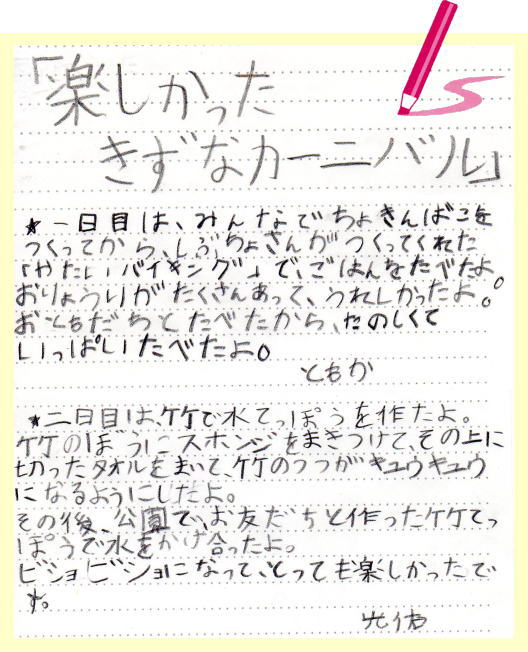 「楽しかった
きずなカーニバル」
★一日目は、みんなでちょきんばこを
つくってから、しぶちょさんがつくってくれた
「やたいバイキング」で、ごはんをたべたよ。
おりょうりがたくさんあって、うれしかったよ。
おともだちとたべたから、たのしくて
いっぱいたべたよ。
ともか
★二日目は、竹で水てっぽうを作たよ。
竹のぼうにスホンジをまきつけて、その上に
切ったタオルをまいて、竹のつつがキュウキュウ
になるようにしたよ。
その後、公園で、お友だちと作った竹てっ
ぽうで水をかけ合ったよ。
ビショビショになって、とっても楽しかったで
す。